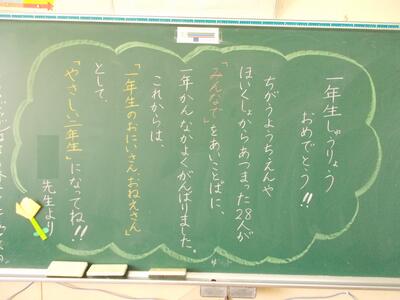 一年生しゅうりょう
おめでとう!!
ちがうようちえんや
ほいくしょからあつまった28人が
「みんなで」をあいことばに、
一年かんなかよくがんばりました。
これからは、
「一年生のおにいさん、おねえさん」
として、
「やさしい二年生」になってね!!
先生より